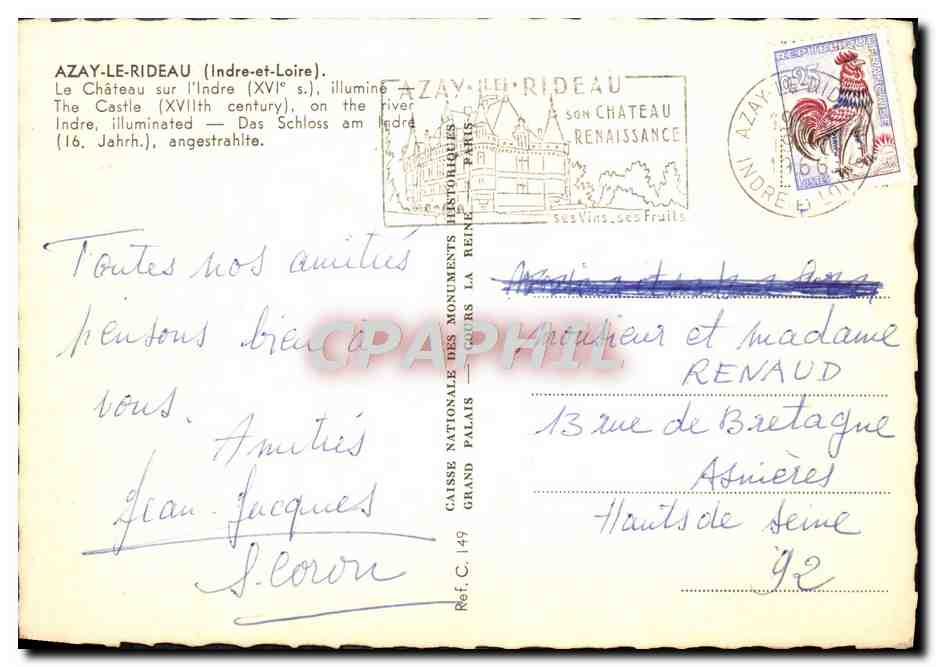 AZAY-LE-RIDEAU (Indre-et-Loire).
Le Château sur l'Indre (XVIe s.), illuminé
The Castle (XVIIth century), on the river
Indre, illuminated — Das Schloss am Indre
(16. Jahrh.), angestrahlte.
AZAY-LE-RIDEAU
SON CHATEAU
RENAISSANCE
ses Vins_ses Fruits
INDRE-ET-LOIRE
REPUBLIQUE FRANÇAISE
0,25
POSTES
Toutes nos amitiés
pensons bien à
vous.
Amitiés
Jean-Jacques
S. Coron
CAISSE NATIONALE DES MONUMENTS HISTORIQUES
GRAND PALAIS — COURS LA REINE — PARIS
Ref. C. 149
Monsieur et madame
RENAUD
13 rue de Bretagne
Asnières
Hauts de Seine
92
CPAPHIL